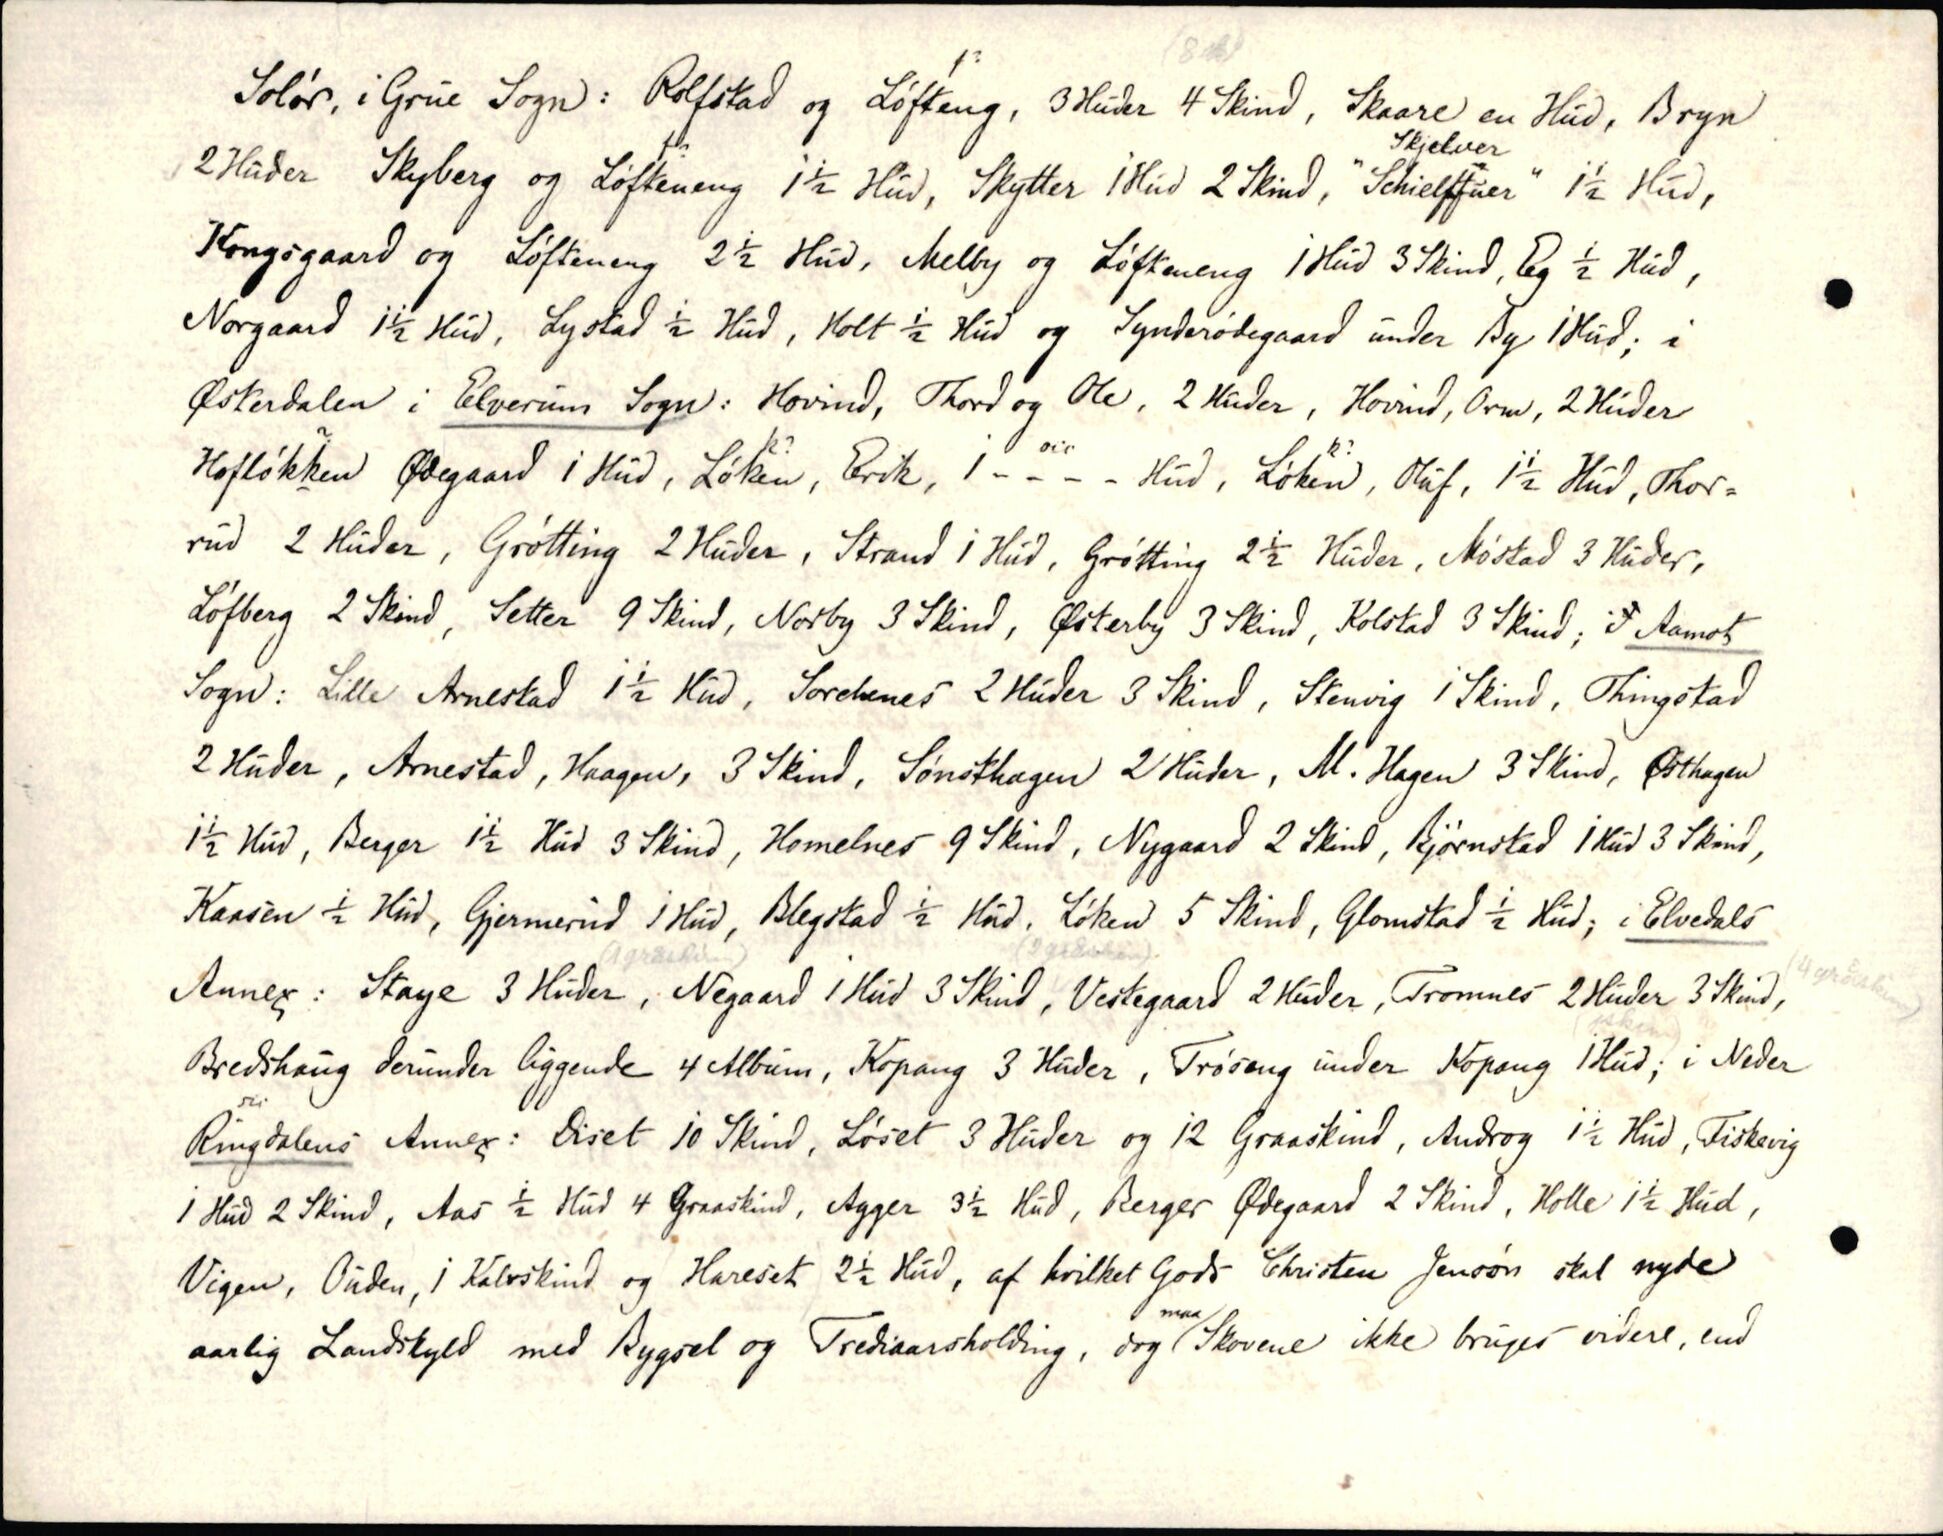 Solør, i Grue Sogn: Rolfstad og Løfteng, 3 Huder 4 Skind, Skaare en Hud, Bryn
Skjelver
2 Huder Skyberg og Løfteneng 1½ Hud, Skytter 1 Hud 2 Skind, "Schielffuer" 1½ Hud,
Kongsgaard og Løfteneng 2½ Hud, Melby og Løfteneng 1 Hud 3 Skind, Eg ½ Hud,
Norgaard 1½ Hud, Lystad ½ Hud, Holt ½ Hud og Synderødegaard under By 1 Hud; i
Østerdalen i Elverum Sogn: Hovind, Thord og Ole, 2 Huder, Hovind, Orm, 2 Huder
Hofløkken Ødegaard 1 Hud, Løken, Erik, 1 - - - - Hud, Løken, Oluf, 1½ Hud, Thor=
rud 2 Huder, Grøtting 2 Huder, Strand 1 Hud, Grøtting 2½ Huder, Møstad 3 Huder,
Løfberg 2 Skind, Setter 9 Skind, Norby 3 Skind, Østerby 3 Skind, Kolstad 3 Skind; i Aamot
Sogn: Lille Arnestad 1½ Hud, Sorchnes 2 Huder 3 Skind, Stenvig 1 Skind, Thingstad
2 Huder, Arnestad, Haagen, 3 Skind, Sønsthagen 2 Huder, M. Hagen 3 Skind, Østhagen
1½ Hud, Berger 1½ Hud 3 Skind, Homelnes 9 Skind, Nygaard 2 Skind, Bjørnstad 1 Hud 3 Skind,
Kaasen ½ Hud, Gjermerud 1 Hud, Blegstad ½ Hud, Løken 5 Skind, Glomstad ½ Hud; i Elvedals
(1 graaskin) (2 graaskin) (4 gråskinn)
Annex: Staye 3 Huder, Negaard 1 Hud 3 Skind, Vestegaard 2 Huder, Tromnes 2 Huder 3 Skind,
Bredshaug derunder liggende 4 Album, Kopang 3 Huder, Trøseng under Kopang 1 Hud; i Neder
Ringdalens Annex: Diset 10 Skind, Løset 3 Huder og 12 Graaskind, Androg 1½ Hud, Fiskevig
1 Hud 2 Skind, Aas ½ Hud 4 Graaskind, Agger 3½ Hud, Berger Ødegaard 2 Skind, Holle 1½ Hud,
Vigen, Ouden, 1 Kalvskind og Hareset 2½ Hud, af hvilket Gods Christen Jensøn skal nyde
maa
aarlig Landskyld med Bygsel og Trediaarsholding, dog Skovene ikke bruges videre, end